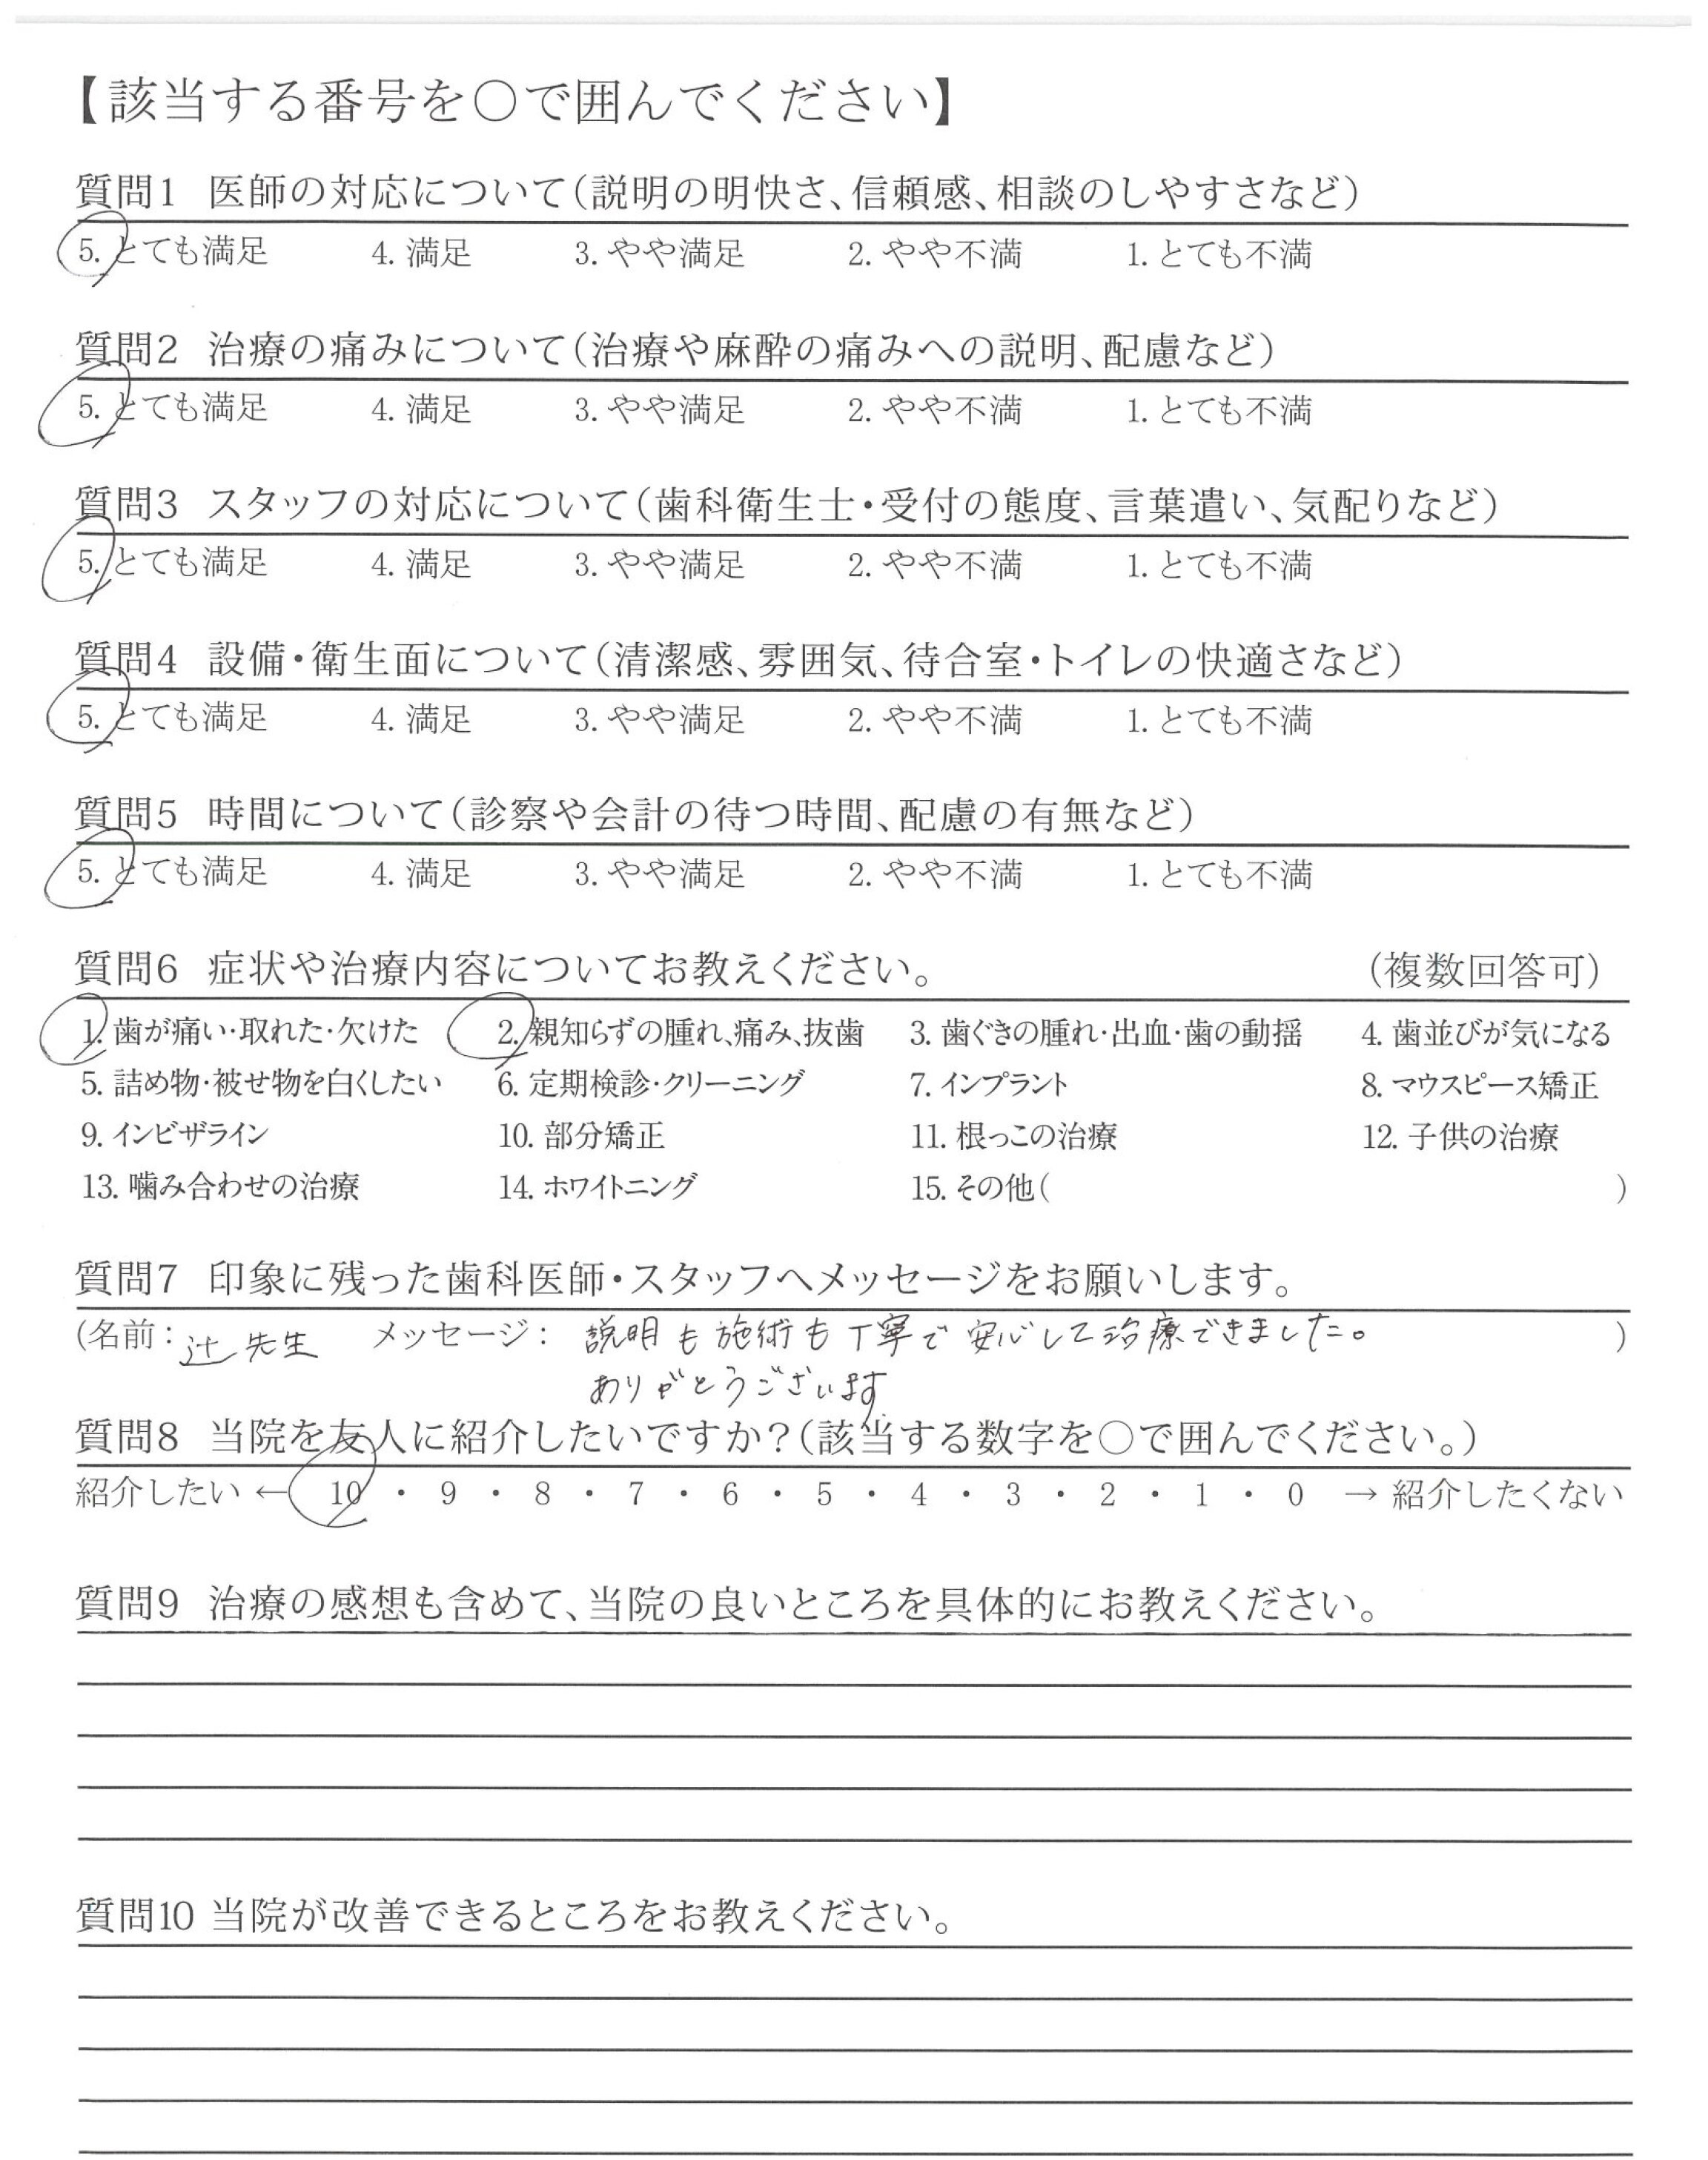 【該当する番号を○で囲んでください】
質問1 医師の対応について(説明の明快さ、信頼感、相談のしやすさなど)
5. とても満足 4. 満足 3. やや満足 2. やや不満 1. とても不満
質問2 治療の痛みについて(治療や麻酔の痛みへの説明、配慮など)
5. とても満足 4. 満足 3. やや満足 2. やや不満 1. とても不満
質問3 スタッフの対応について(歯科衛生士・受付の態度、言葉遣い、気配りなど)
5. とても満足 4. 満足 3. やや満足 2. やや不満 1. とても不満
質問4 設備・衛生面について(清潔感、雰囲気、待合室・トイレの快適さなど)
5. とても満足 4. 満足 3. やや満足 2. やや不満 1. とても不満
質問5 時間について(診察や会計の待つ時間、配慮の有無など)
5. とても満足 4. 満足 3. やや満足 2. やや不満 1. とても不満
質問6 症状や治療内容についてお教えください。 (複数回答可)
1. 歯が痛い・取れた・欠けた 2. 親知らずの腫れ、痛み、抜歯 3. 歯ぐきの腫れ・出血・歯の動揺 4. 歯並びが気になる
5. 詰め物・被せ物を白くしたい 6. 定期検診・クリーニング 7. インプラント 8. マウスピース矯正
9. インビザライン 10. 部分矯正 11. 根っこの治療 12. 子供の治療
13. 噛み合わせの治療 14. ホワイトニング 15. その他( )
質問7 印象に残った歯科医師・スタッフへメッセージをお願いします。
(名前: 辻先生 メッセージ: 説明も施術も丁寧で安心して治療できました。 )
ありがとうございます
質問8 当院を友人に紹介したいですか?(該当する数字を○で囲んでください。)
紹介したい ← 10 ・ 9 ・ 8 ・ 7 ・ 6 ・ 5 ・ 4 ・ 3 ・ 2 ・ 1 ・ 0 → 紹介したくない
質問9 治療の感想も含めて、当院の良いところを具体的にお教えください。
質問10 当院が改善できるところをお教えください。